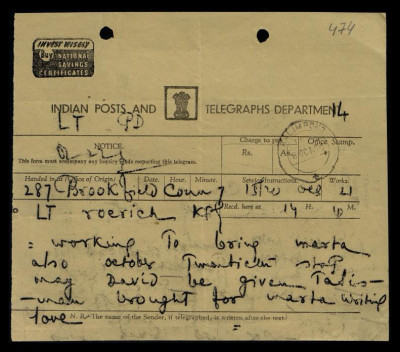 474
INVEST WISELY
Buy NATIONAL
SAVINGS
CERTIFICATES
INDIAN POSTS AND TELEGRAPHS DEPARTMENT
LT PD
NOTICE.
This form must accompany any inquiry made respecting this telegram.
Charge to pay.
Rs. As.
Office Stamp.
Handed in at (Office of Origin). Date. Hour. Minute. Service Instructions. Words.
287 Brookfield Conn 7 18/20 21
LT roerich KPG Recd. here at 14 H. 10 M.
= working To bring marta
also october Twentieth stop
may David be given Talis-
-man brought for marta writing
love
N. B. The name of the Sender, if telegraphed, is written after the text.
=